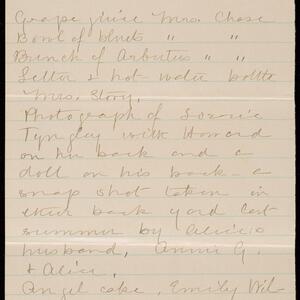 Grape juice Mrs. Chase
Bowl of bluets " "
Bunch of Arbutus " "
Letter & hot water bottle
Mrs. Story.
Photograph of
Tyngley with Howard
on his back and a
doll on his back - a
snap shot taken in
their back yard last
summer by Alicia's
husband, Annie G.
& Alice.
Angel cake, Emily Wil-